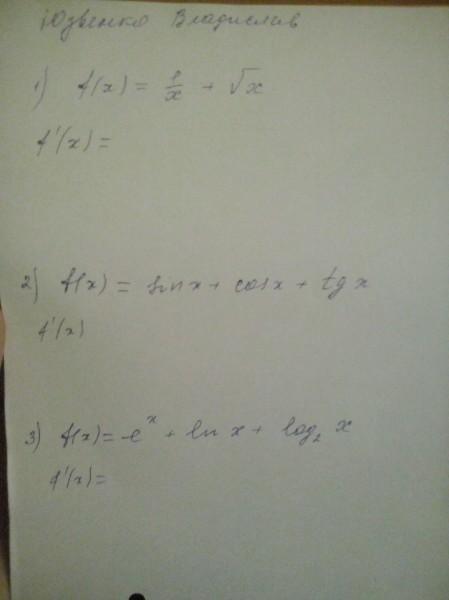 Юзвенко Владислав
1) f(x) = 1/x + √x
f'(x) =
2) f(x) = sin x + cos x + tg x
f'(x)
3) f(x) = e^x + ln x + log₂ x
f'(x) =